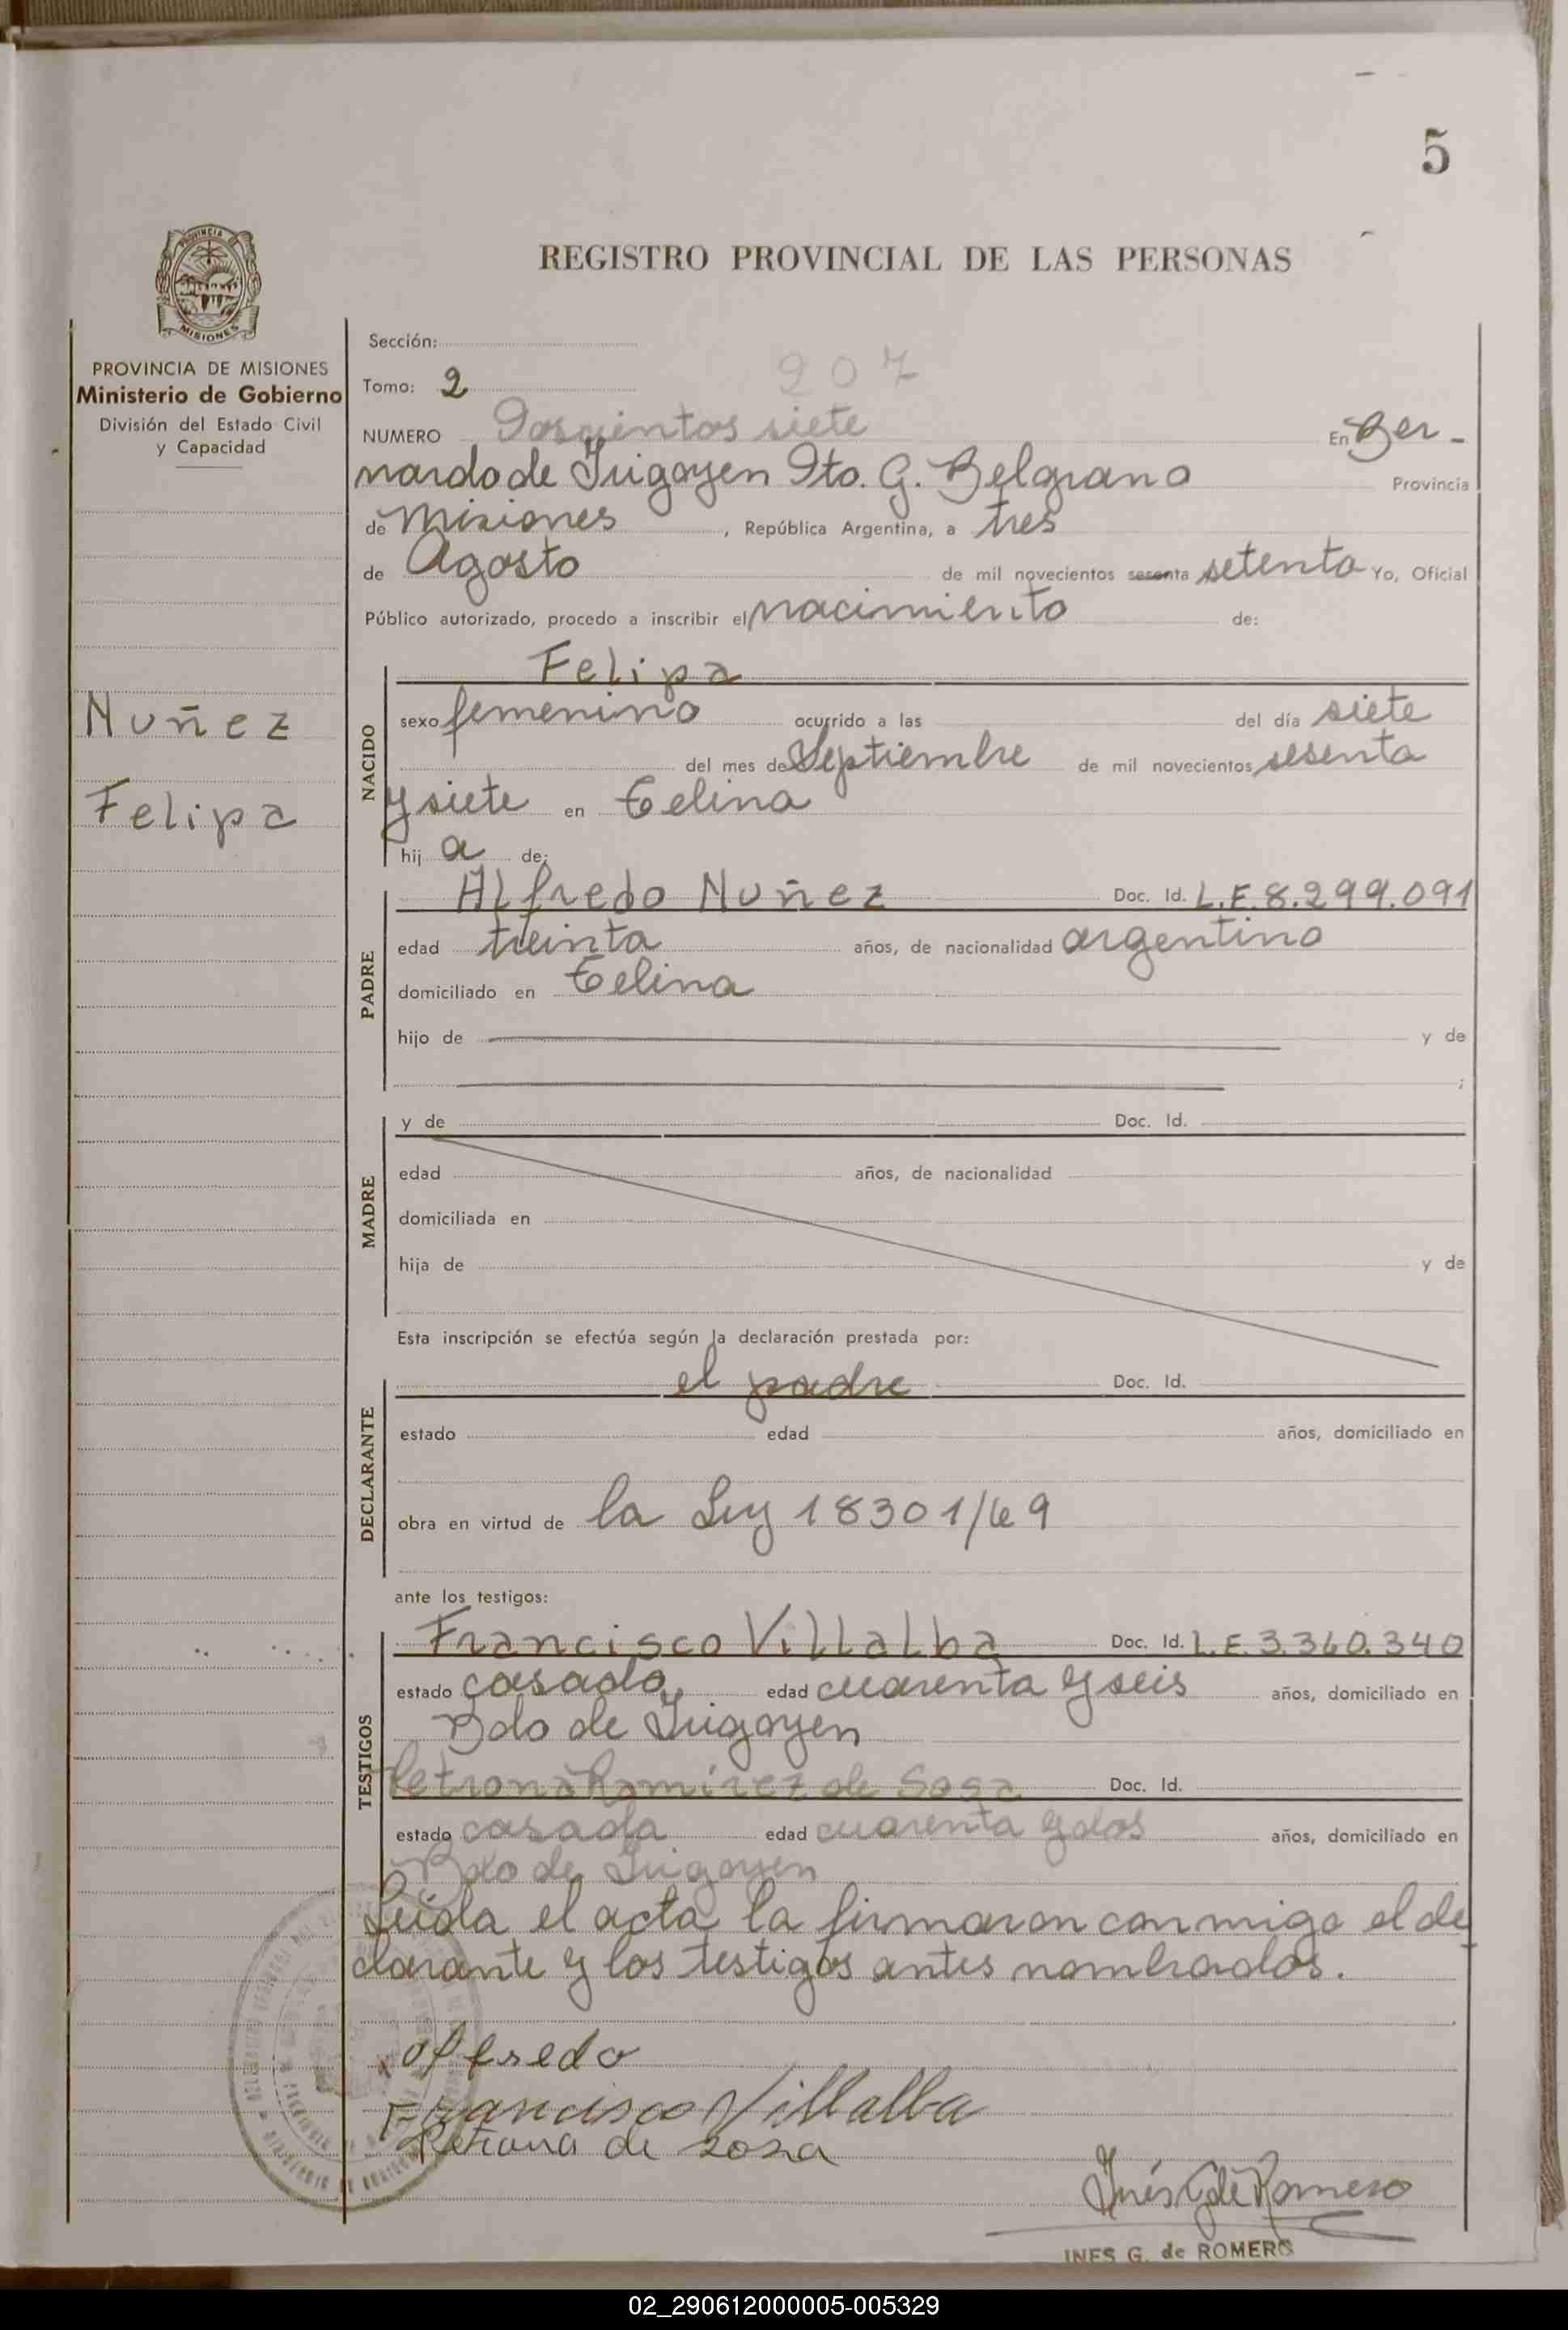 5
REGISTRO PROVINCIAL DE LAS PERSONAS
PROVINCIA DE
MISIONES
PROVINCIA DE MISIONES
Ministerio de Gobierno
División del Estado Civil
y Capacidad
Nuñez
Felipa
Sección:
Tomo: 2 207
NUMERO Doscientos siete En Ber-
nardo de Irigoyen Dto. G. Belgrano Provincia
de Misiones , República Argentina, a tres
de Agosto de mil novecientos sesenta setenta Yo, Oficial
Público autorizado, procedo a inscribir el nacimiento de:
NACIDO
Felipa
sexo femenino ocurrido a las del día siete
del mes de Septiembre de mil novecientos sesenta
y siete en Celina
hij a de:
PADRE
Alfredo Nuñez Doc. Id. L.E. 8.299.091
edad treinta años, de nacionalidad argentino
domiciliado en Celina
hijo de y de
;
MADRE
y de Doc. Id.
edad años, de nacionalidad
domiciliada en
hija de y de
Esta inscripción se efectúa según la declaración prestada por:
DECLARANTE
el padre Doc. Id.
estado edad años, domiciliado en
obra en virtud de la Ley 18301/69
ante los testigos:
TESTIGOS
Francisco Villalba Doc. Id. L.E. 3.360.340
estado casado edad cuarenta y seis años, domiciliado en
Bdo de Irigoyen
Petrona Ramirez de Sosa Doc. Id.
estado casada edad cuarenta y dos años, domiciliado en
Bdo de Irigoyen
Leida el acta la firmaron conmigo el de
clarante y los testigos antes nombrados.
x alfredo
Francisco Villalba
Petrona de sosa
Inés G de Romero
INES G. de ROMERO
02_290612000005-005329